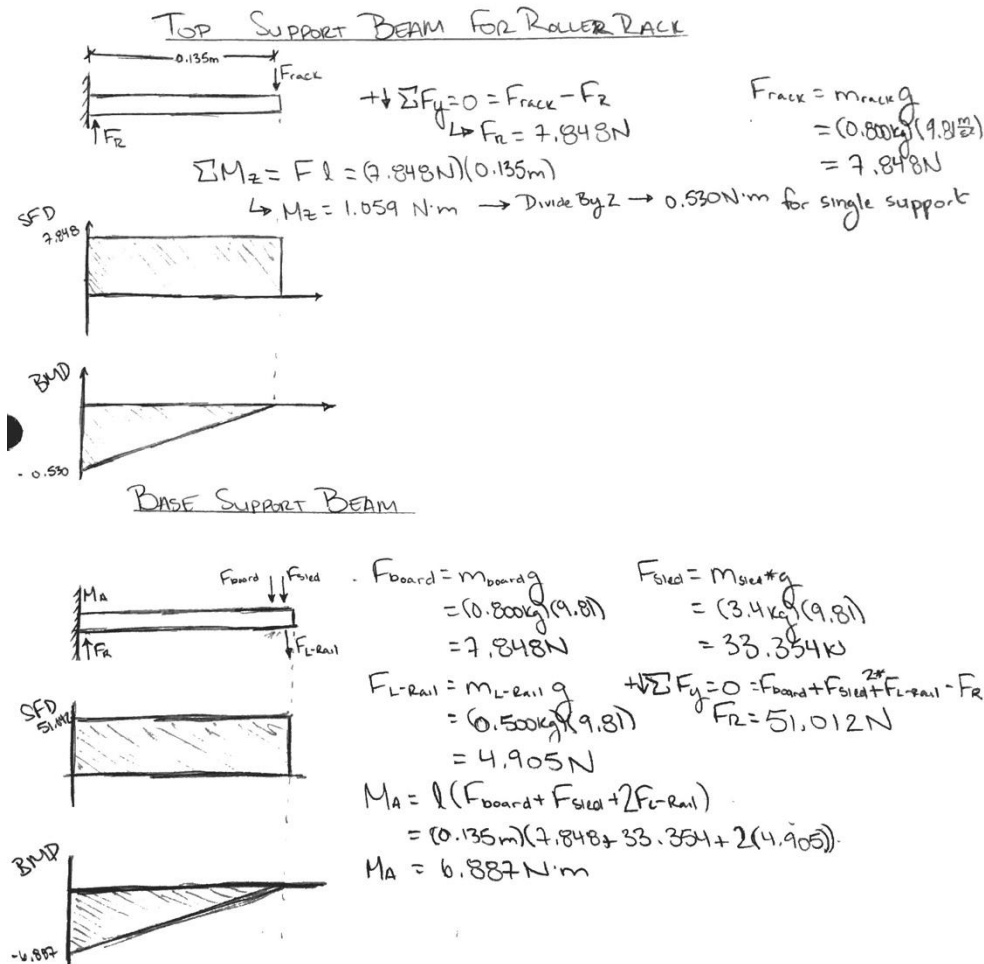 TOP SUPPORT BEAM FOR ROLLER RACK
0.135m
Frack
FR
+↓ ΣFy=0 = Frack - FR
↳ FR = 7.848N
Frack = mrack g
= (0.800kg)(9.81 m/s²)
= 7.848N
ΣMz = F l = (7.848N)(0.135m)
↳ Mz = 1.059 N·m → Divide By 2 → 0.530N·m for single support
SFD
7.848
BMD
-0.530
BASE SUPPORT BEAM
MA
Fboard
Fsled
FR
FL-Rail
Fboard = mboard g
= (0.800kg)(9.81)
= 7.848N
Fsled = msled*g
= (3.4kg)(9.81)
= 33.354N
FL-Rail = mL-Rail g
= (0.500kg)(9.81)
= 4.905N
+↓ΣFy=0 = Fboard + Fsled + 2*FL-Rail - FR
FR = 51.012N
SFD
51.012
MA = l(Fboard + Fsled + 2FL-Rail)
= (0.135m)(7.848 + 33.354 + 2(4.905))
MA = 6.887 N·m
BMD
-6.887